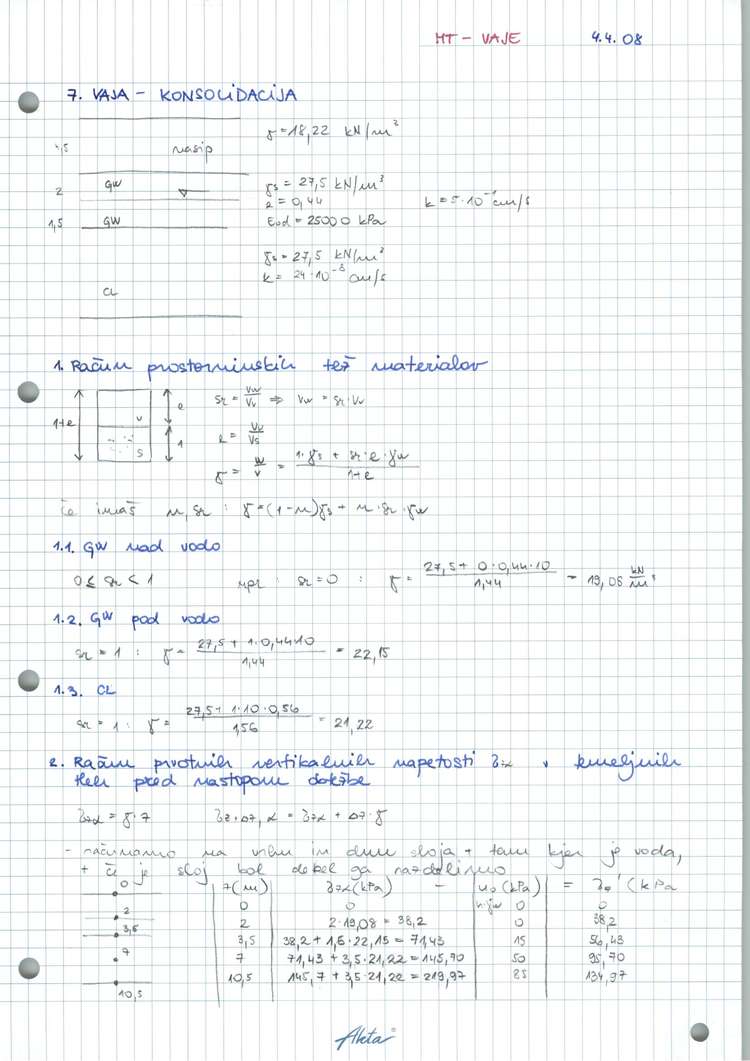 MT - VAJE 4.4.08
7. VAJA - KONSOLIDACIJA
nasip γ = 18,22 kN/m³
2 GW γs = 27,5 kN/m³
e = 0,44 k = 5·10 cm/s
1,5 GW Eod = 25000 kPa
γs = 27,5 kN/m³
k = 24·10⁻⁸ cm/s
CL
1. Račun prostorninskih tež materialov
1+e e v 1 s
Sr = Vw/Vv ⇒ Vw = Sr·Vv
e = Vv/Vs
γ = W/V = (1·γs + Sr·e·γw)/(1+e)
če imaš n, Sr : γ = (1-n)γs + n·Sr·γw
1.1. GW nad vodo
0 ≤ Sr < 1 npr : Sr = 0 : γ = (27,5 + 0·0,44·10)/1,44 = 19,08 kN/m³
1.2. GW pod vodo
Sr = 1 : γ = (27,5 + 1·0,44·10)/1,44 = 22,15
1.3. CL
Sr = 1 : γ = (27,5 + 1·10·0,56)/1,56 = 21,22
2. Račun prvotnih vertikalnih napetosti v temeljnih
tleh pred nastopom obtežbe
- računamo na vrhu in dnu sloja + tam kjer je voda,
+ če je sloj bolj debel ga razdelimo
0 z (m) σzx (kPa) - u₀ (kPa) = σ₀' (kPa
0 0 h·γw 0 0
2 2 2·19,08 = 38,2 0 38,2
3,5 3,5 38,2 + 1,5·22,15 = 71,43 15 56,43
7 7 71,43 + 3,5·21,22 = 145,70 50 95,70
10,5 145,7 + 3,5·21,22 = 219,97 85 134,97
10,5
Akta